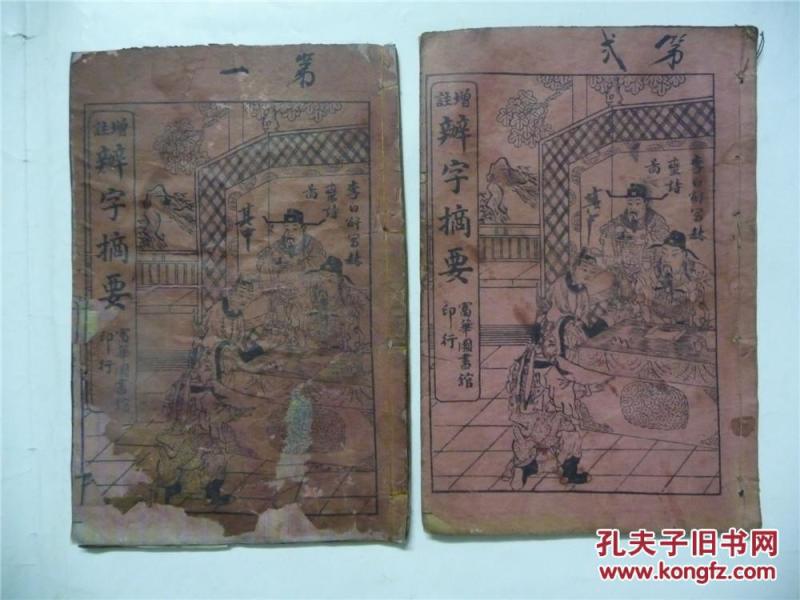 第一
增註
辨字摘要
富華圖書館
印行
李白醉寫赫
蠻詩
啚
第弍
增註
辨字摘要
富華圖書館
印行
李白醉寫赫
蠻詩
啚
孔夫子旧书网
www.kongfz.com